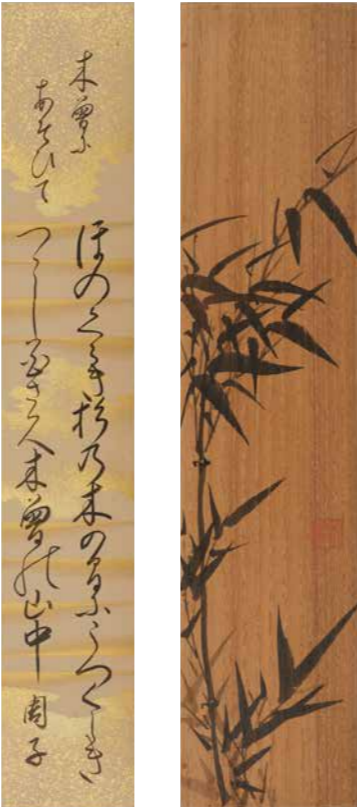 木曽に
あそひて
ほのくらき杉の木の間にうつくしき
つゝし花さく木曽の山中